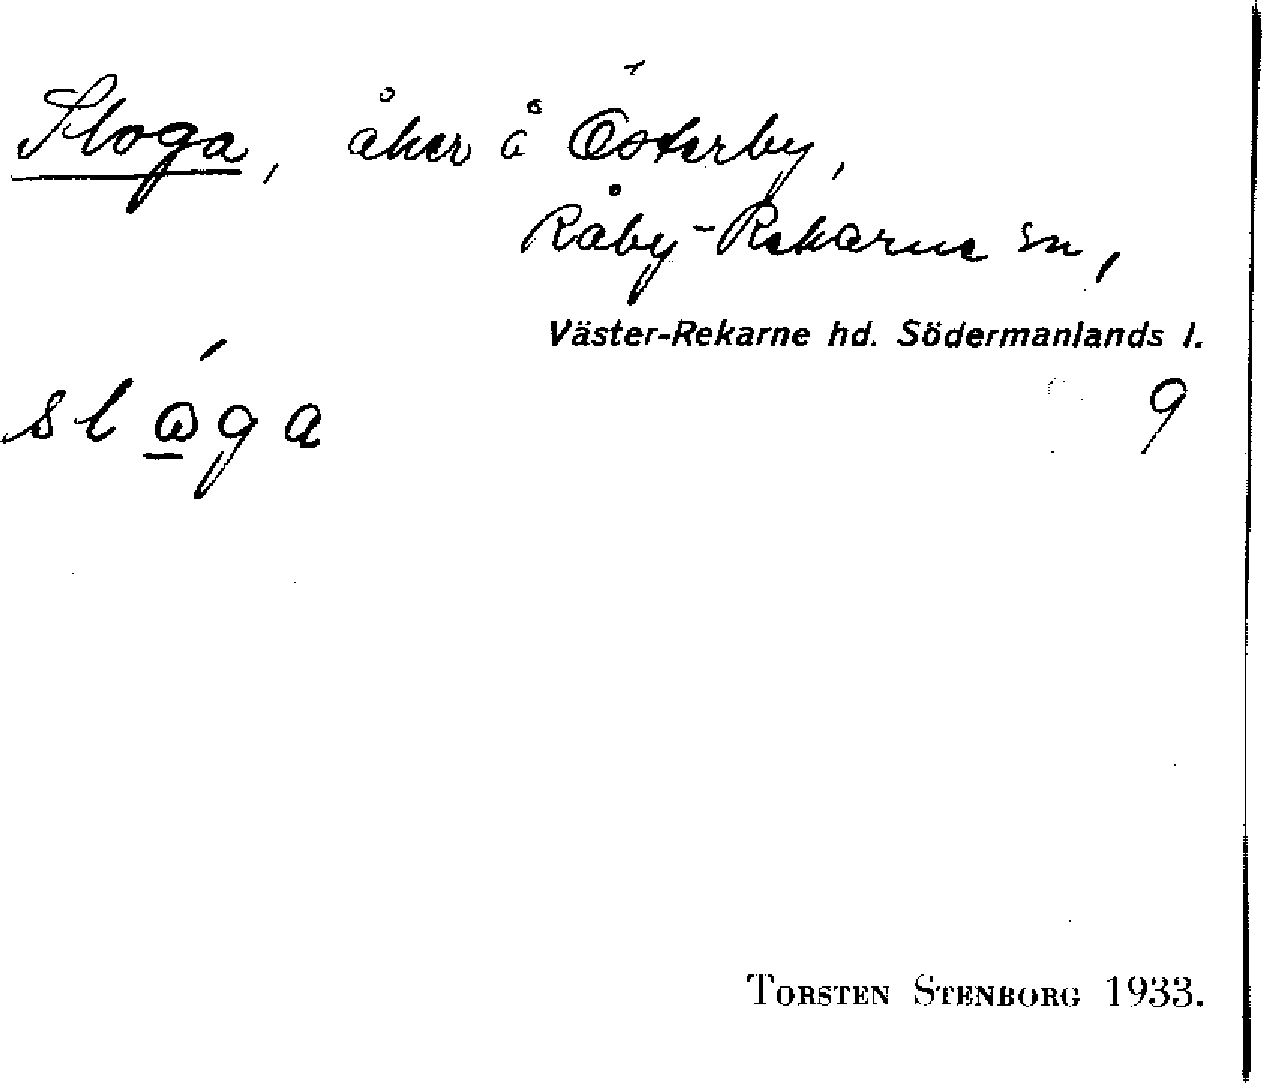 Sloga, åker å Österby,
Råby-Rekarne sn,
Väster-Rekarne hd. Södermanlands l.
9
TORSTEN STENBORG 1933.